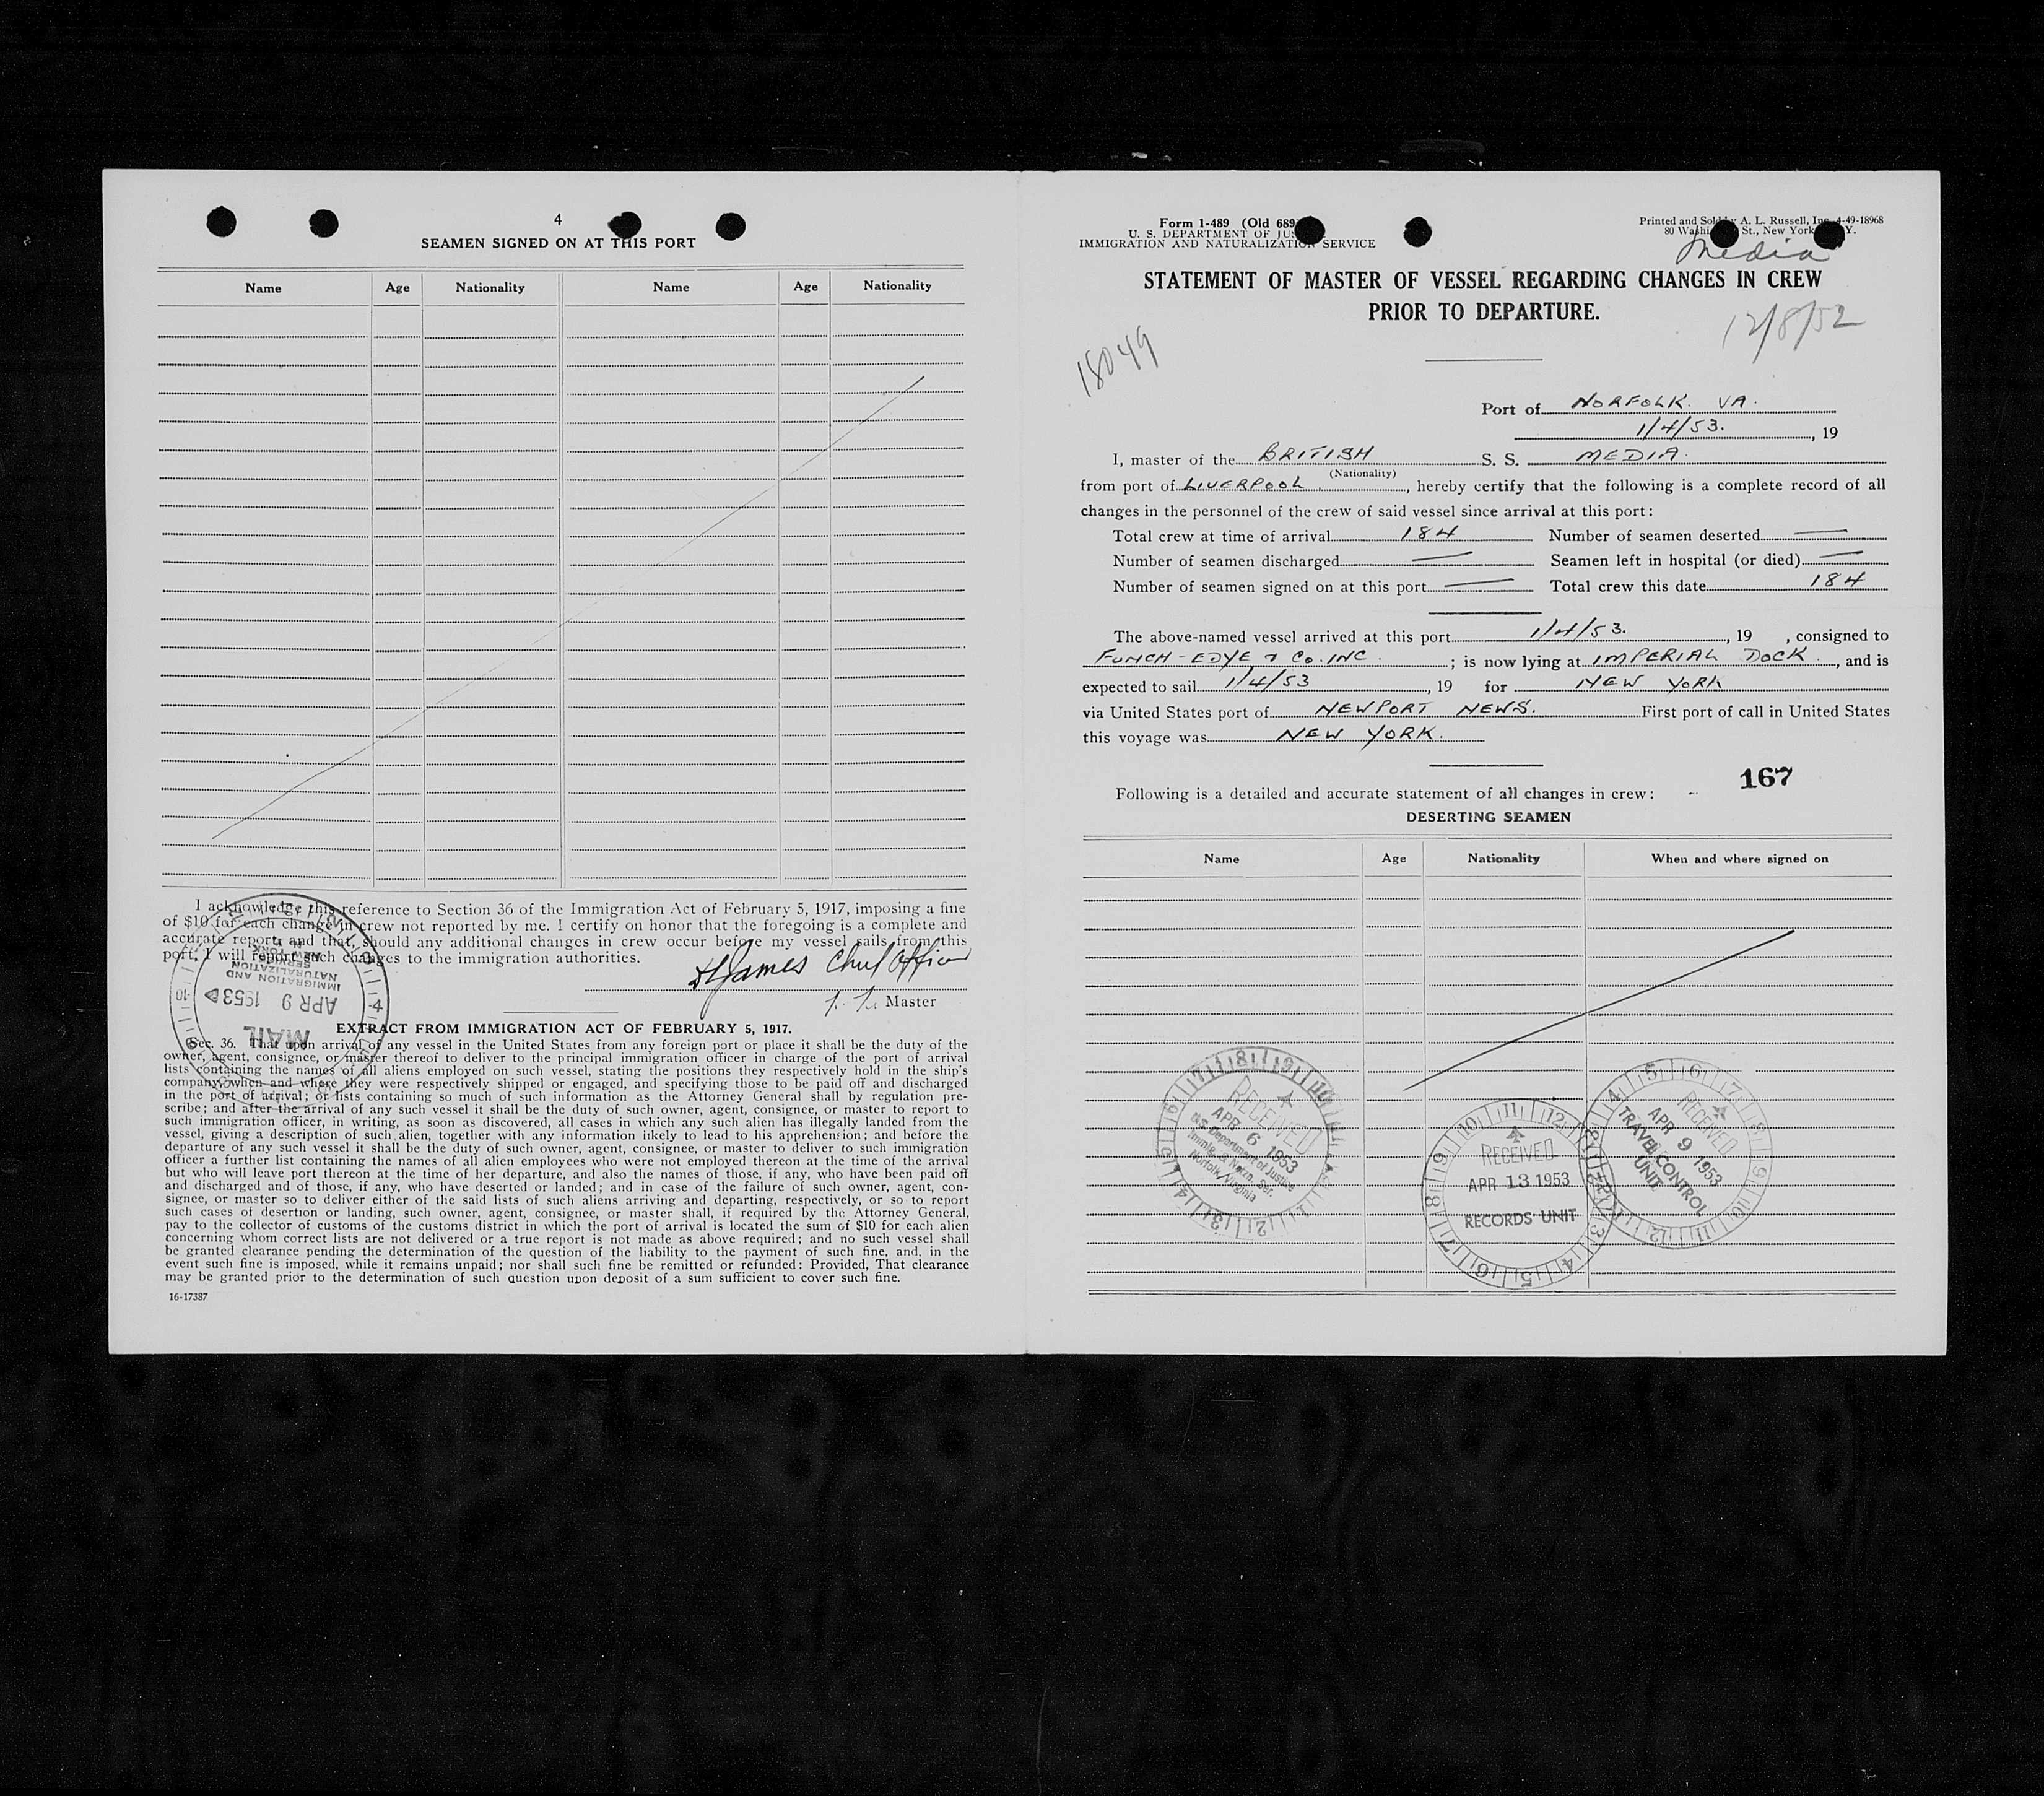 4
SEAMEN SIGNED ON AT THIS PORT
Name Age Nationality Name Age Nationality
I acknowledge this reference to Section 36 of the Immigration Act of February 5, 1917, imposing a fine
of $10 for each change in crew not reported by me. I certify on honor that the foregoing is a complete and
accurate report, and that, should any additional changes in crew occur before my vessel sails from this
port, I will report such changes to the immigration authorities.
James Chief Officer
Master
MAIL
APR 9 1953
IMMIGRATION AND
NATURALIZATION
SERVICE
NEW YORK
EXTRACT FROM IMMIGRATION ACT OF FEBRUARY 5, 1917.
Sec. 36. That upon arrival of any vessel in the United States from any foreign port or place it shall be the duty of the
owner, agent, consignee, or master thereof to deliver to the principal immigration officer in charge of the port of arrival
lists containing the names of all aliens employed on such vessel, stating the positions they respectively hold in the ship's
company, when and where they were respectively shipped or engaged, and specifying those to be paid off and discharged
in the port of arrival; or lists containing so much of such information as the Attorney General shall by regulation pre-
scribe; and after the arrival of any such vessel it shall be the duty of such owner, agent, consignee, or master to report to
such immigration officer, in writing, as soon as discovered, all cases in which any such alien has illegally landed from the
vessel, giving a description of such alien, together with any information likely to lead to his apprehension; and before the
departure of any such vessel it shall be the duty of such owner, agent, consignee, or master to deliver to such immigration
officer a further list containing the names of all alien employees who were not employed thereon at the time of the arrival
but who will leave port thereon at the time of her departure, and also the names of those, if any, who have been paid off
and discharged and of those, if any, who have deserted or landed; and in case of the failure of such owner, agent, con-
signee, or master so to deliver either of the said lists of such aliens arriving and departing, respectively, or so to report
such cases of desertion or landing, such owner, agent, consignee, or master shall, if required by the Attorney General,
pay to the collector of customs of the customs district in which the port of arrival is located the sum of $10 for each alien
concerning whom correct lists are not delivered or a true report is not made as above required; and no such vessel shall
be granted clearance pending the determination of the question of the liability to the payment of such fine, and, in the
event such fine is imposed, while it remains unpaid; nor shall such fine be remitted or refunded: Provided, That clearance
may be granted prior to the determination of such question upon deposit of a sum sufficient to cover such fine.
16-17387
Form 1-489 (Old 689
U. S. DEPARTMENT OF JUS
IMMIGRATION AND NATURALIZATION SERVICE
Printed and Sold by A. L. Russell, Inc. 4-49-18968
80 Washi St., New York Y.
Media
STATEMENT OF MASTER OF VESSEL REGARDING CHANGES IN CREW
PRIOR TO DEPARTURE.
12/8/52
18049
Port of NORFOLK. VA.
1/4/53. , 19
I, master of the BRITISH S. S. MEDIA.
(Nationality)
from port of LIVERPOOL , hereby certify that the following is a complete record of all
changes in the personnel of the crew of said vessel since arrival at this port:
Total crew at time of arrival 184 Number of seamen deserted —
Number of seamen discharged — Seamen left in hospital (or died) —
Number of seamen signed on at this port — Total crew this date 184
The above-named vessel arrived at this port 1/4/53. , 19 , consigned to
FUNCH-EDYE & CO. INC. ; is now lying at IMPERIAL DOCK. , and is
expected to sail 1/4/53 , 19 for NEW YORK
via United States port of NEWPORT NEWS. First port of call in United States
this voyage was NEW YORK.
167
Following is a detailed and accurate statement of all changes in crew:
DESERTING SEAMEN
Name Age Nationality When and where signed on
RECEIVED
APR 6 1953
U.S. Department of Justice
Immig. & Natzn. Ser.
Norfolk, Virginia
RECEIVED
APR 13 1953
RECORDS UNIT
RECEIVED
APR 9 1953
TRAVEL CONTROL
UNIT